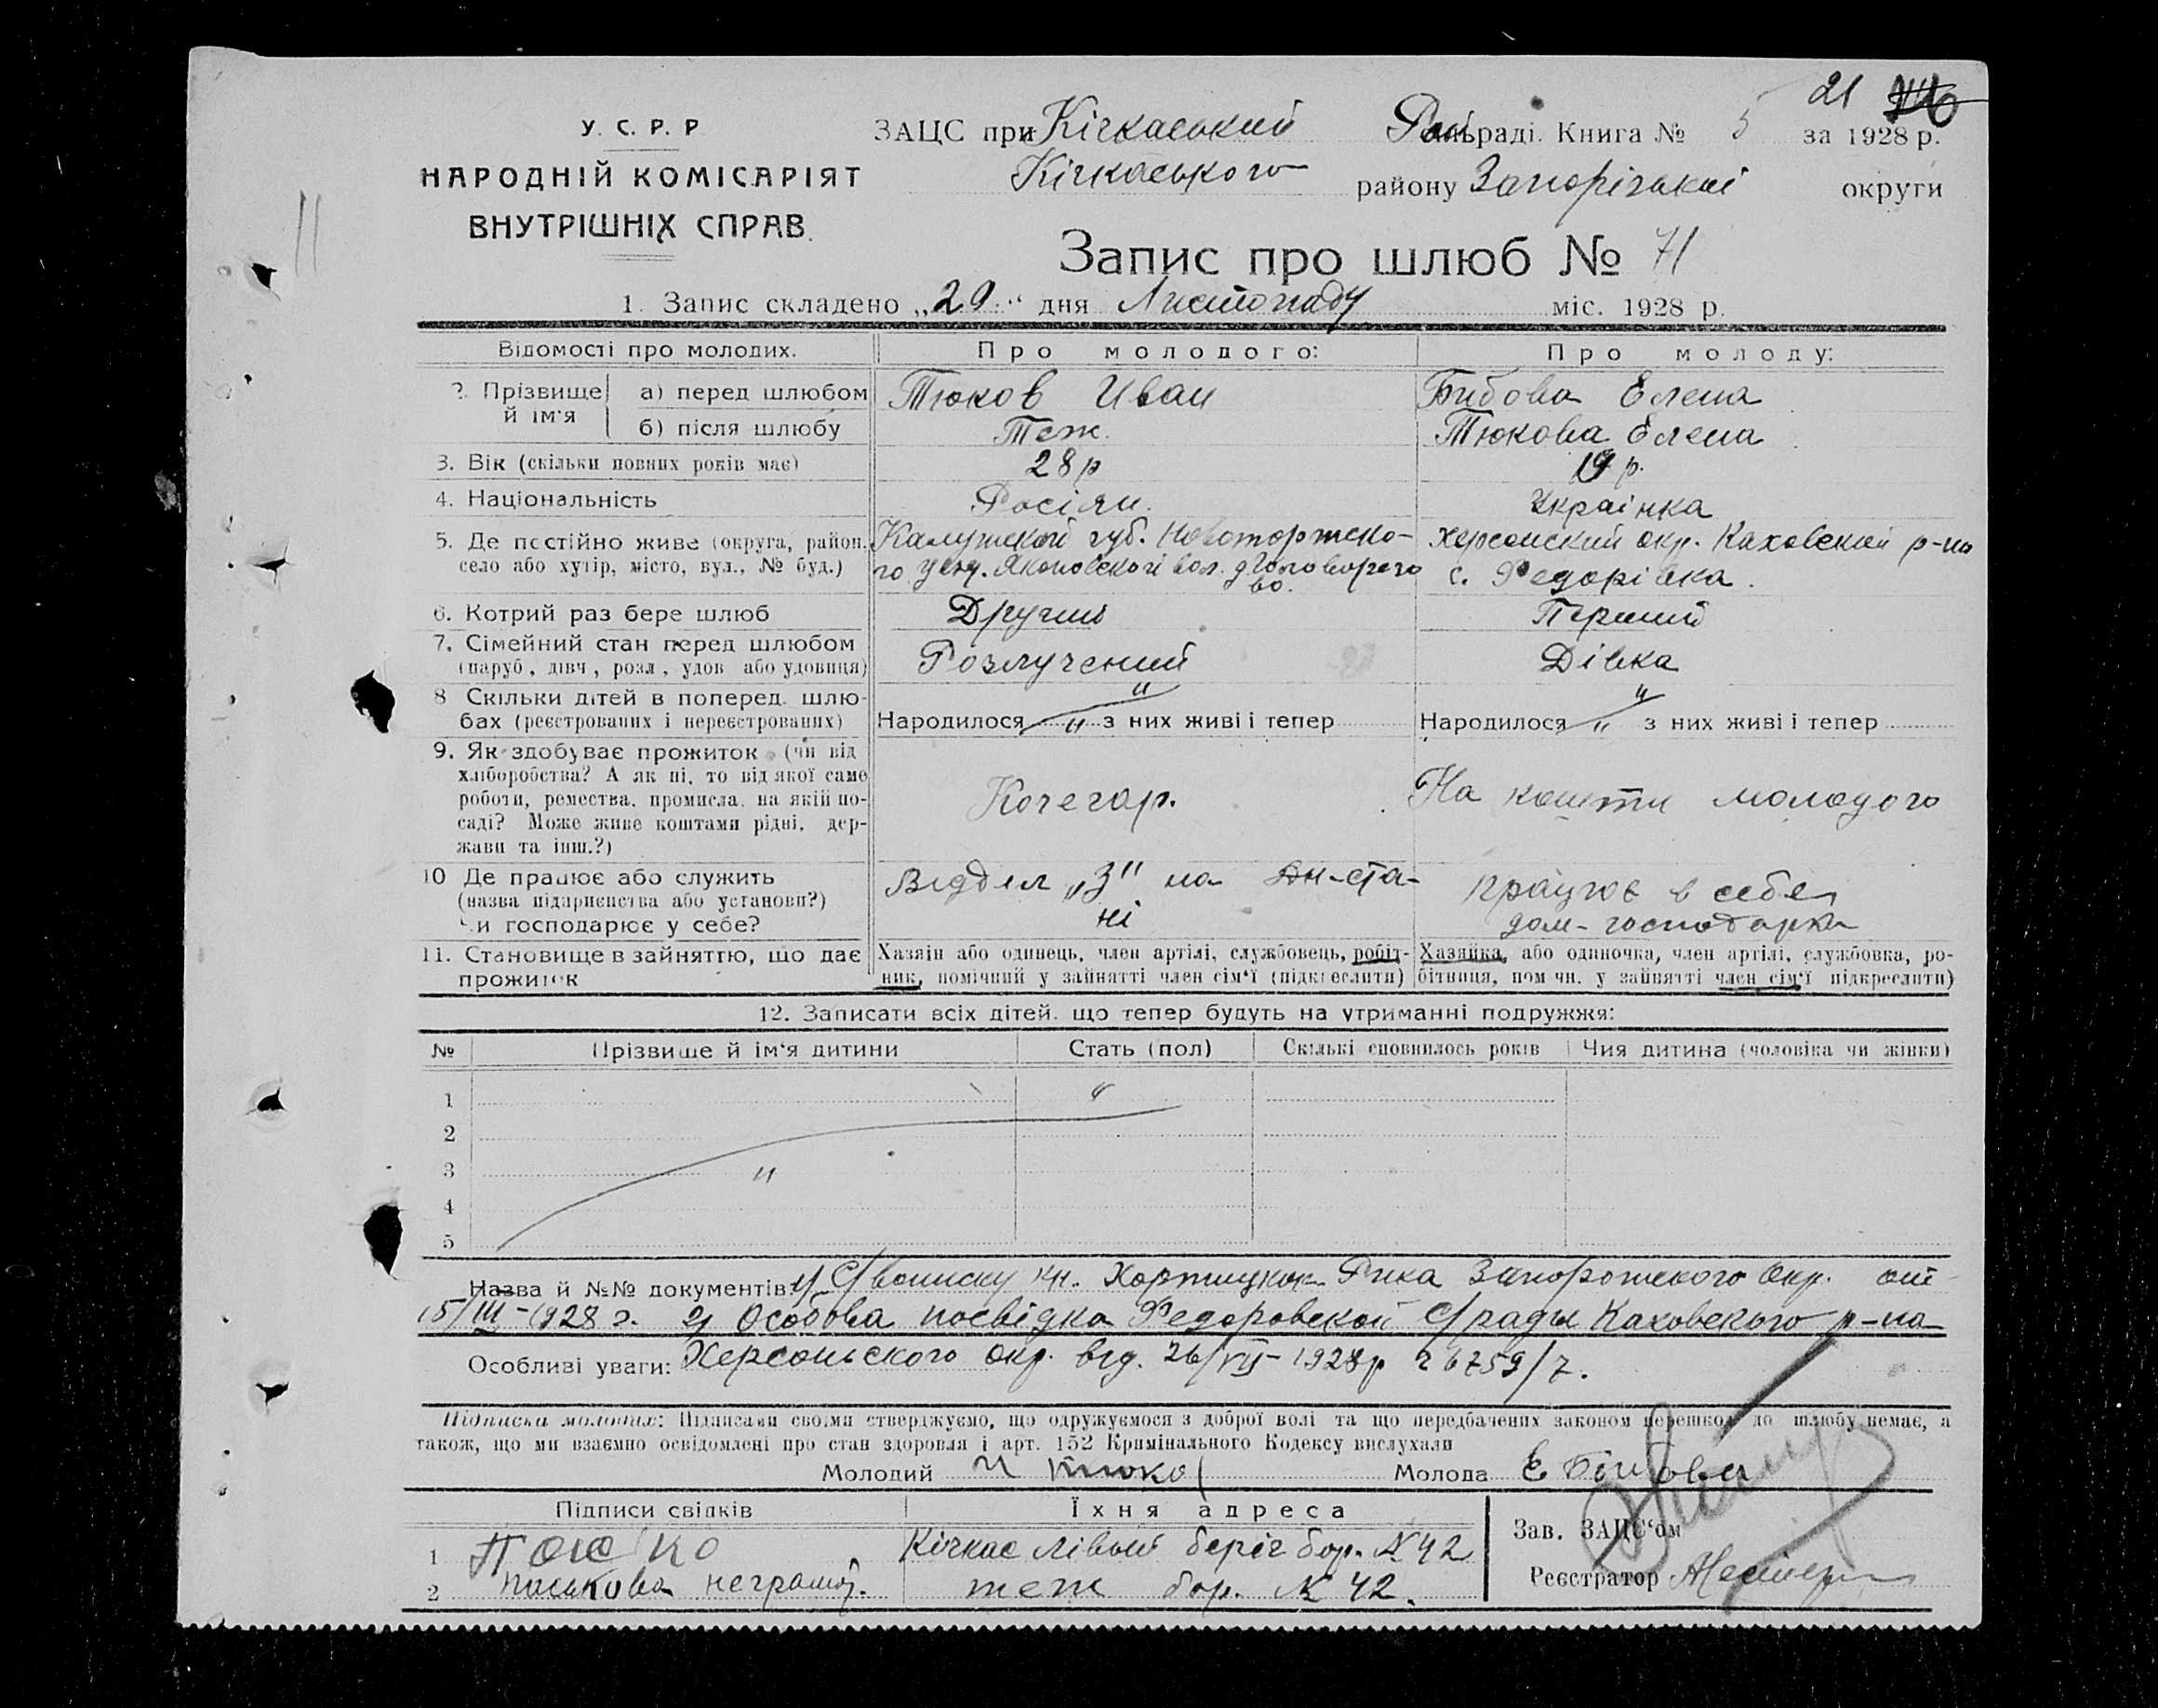 21
У. С. Р. Р
НАРОДНІЙ КОМІСАРІЯТ
ВНУТРІШНІХ СПРАВ.
ЗАЦС при Кічкаський Райраді. Книга № 5 за 1928 р.
Кічкаського району Запорізькой округи
Запис про шлюб № 71
1. Запис складено „29“ дня Листопаду міс. 1928 р.
Відомості про молодих. Про молодого: Про молоду:
2. Прізвище й ім'я а) перед шлюбом Тюков Иван Бибова Елена
б) після шлюбу Теж. Тюкова Елена
3. Вік (скільки повних років має) 28 р 19 р.
4. Національність Росіян. Украінка
5. Де постійно живе (округа, район, Калужской губ. Новоторжско- Херсонский окр. Каховский р-на
село або хутір, місто, вул., № буд.) го уезд. вол. с. Федорівка.
6. Котрий раз бере шлюб Другий Перший
7. Сімейний стан перед шлюбом Розлучений Дівка
(паруб, дівч, розл, удов або удовиця)
8 Скільки дітей в поперед. шлю-
бах (реєстрованих і нереєстрованих) Народилося " з них живі і тепер " Народилося " з них живі і тепер "
9. Як здобуває прожиток (чи від
хліборобства? А як ні, то від якої саме
роботи, ремества, промисла, на якій по- Кочегар. На кошти молодого
саді? Може живе коштами рідні, дер-
жави та інш.?)
10 Де працює або служить Відділ „З" на Дн-ста- працює в себе
(назва підприємства або установи?) ні дом-господарка
Чи господарює у себе?
11. Становище в зайняттю, що дає Хазяїн або одинець, член артілі, службовець, робіт- Хазяйка, або одиночка, член артілі, службовка, ро-
прожиток ник, помічний у зайнятті член сім'ї (підкреслити) бітниця, пом чн. у зайнятті член сім'ї підкреслити)
12. Записати всіх дітей, що тепер будуть на утриманні подружжя:
№ Прізвище й ім'я дитини Стать (пол) Скількі сповнилось років Чия дитина (чоловіка чи жінки)
1 "
2
3 "
4
5
Назва й №№ документів: 1) Рика Запорожского Окр. от
15/III-1928 г. 2) Особова посвідка Федоровской с/рады Каховського р-на
Особливі уваги: Херсоньского окр. від. 26/VII-1928р 6759/7.
Підписка молодих: Підписами своїми стверджуємо, що одружуємося з доброї волі та що передбачених законом перешкод до шлюбу немає, а
також, що ми взаємно освідомлені про стан здоровля і арт. 152 Кримінального Кодексу вислухали
Молодий И Тюков Молода Е Бібова
Підписи свідків Їхня адреса
1 Кічкас лівий беріг бар. № 42 Зав. ЗАЦС'ом
2 неграмот. теж бар. № 42. Реєстратор